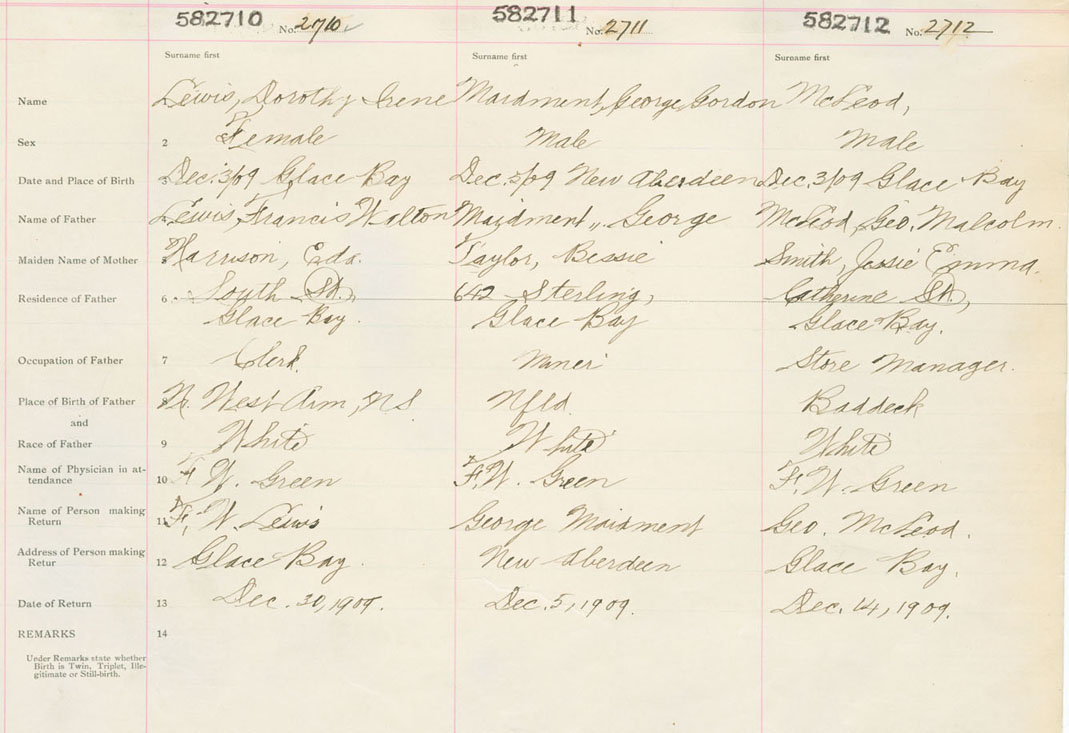 582710 No. 2710 582711 No. 2711 582712 No. 2712
Surname first Surname first Surname first
Name Lewis, Dorothy Irene Maidment, George Gordon McLeod,
Sex 2 Female Male Male
Date and Place of Birth 3 Dec. 3/09 Glace Bay Dec. 5/09 New Aberdeen Dec. 3/09 Glace Bay
Name of Father Lewis, Francis Walton Maidment,, George McLeod, Geo. Malcolm.
Maiden Name of Mother 5 Harrison, Eda. Taylor, Bessie Smith, Jessie Emma.
Residence of Father 6 South St., 642 Sterling, Catherine St.,
Glace Bay. Glace Bay Glace Bay.
Occupation of Father 7 Clerk. Miner Store Manager.
Place of Birth of Father 8 N. West Arm, NS Nfld. Baddeck
and
Race of Father 9 White White White
Name of Physician in at-
tendance 10 F. W. Green F. W. Green F. W. Green
Name of Person making
Return 11 F. W. Lewis George Maidment Geo. McLeod.
Address of Person making
Retur 12 Glace Bay. New Aberdeen Glace Bay.
Date of Return 13 Dec. 30, 1909. Dec. 5, 1909. Dec. 14, 1909.
REMARKS 14
Under Remarks state whether
Birth is Twin, Triplet, Ille-
gitimate or Still-birth.